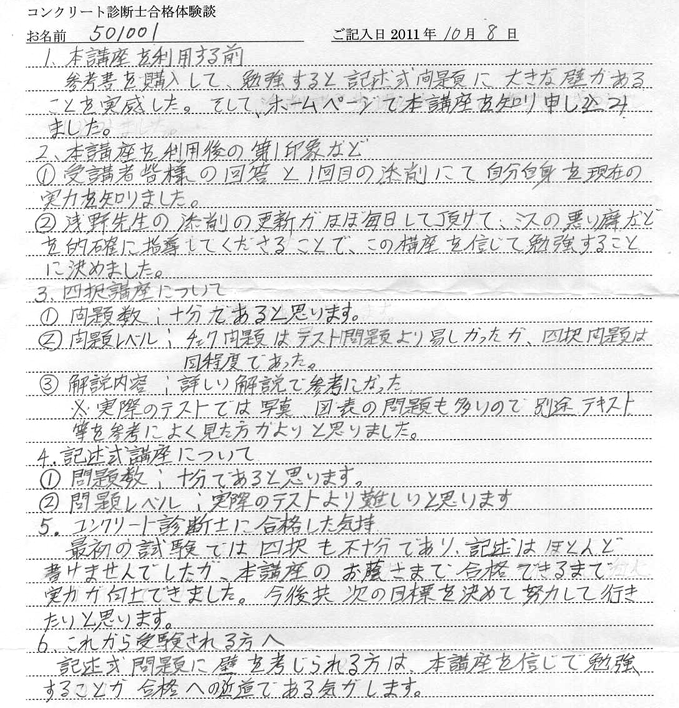 コンクリート診断士合格体験談
お名前 501001 ご記入日 2011年 10月 8日
1. 本講座を利用する前
参考書を購入して、勉強すると記述式問題に大きな壁がある
ことを実感した。そして、ホームページで本講座を知り申し込み
ました。
2. 本講座を利用後の第1印象など
① 受講者皆様の回答と1回目の添削にて自分自身を現在の
実力を知りました。
② 浅野先生の添削の更新がほぼ毎日して頂けて、ミスの悪い癖など
を的確に指導してくださることで、この構座を信じて勉強すること
に決めました。
3. 四択講座について
① 問題数 ; 十分であると思います。
② 問題レベル ; チェック問題はテスト問題より易しかったが、四択問題は
同程度であった。
③ 解説内容 ; 詳しい解説で参考になった
※ 実際のテストでは写真 図表の問題も多いので別途テキスト
等を参考によく見た方がよいと思いました。
4. 記述式講座について
① 問題数 ; 十分であると思います。
② 問題レベル ; 実際のテストより難しいと思います
5. コンクリート診断士に合格した気持
最初の試験では四択も不十分であり、記述はほとんど
書けませんでしたが、本講座のお蔭さまで合格できるまで
実力が向上できました。今後共次の目標を決めて努力して行き
たいと思います。
6. これから受験される方へ
記述式問題に壁を考じられる方は、本講座を信じて勉強
することが合格への近道である気がします。